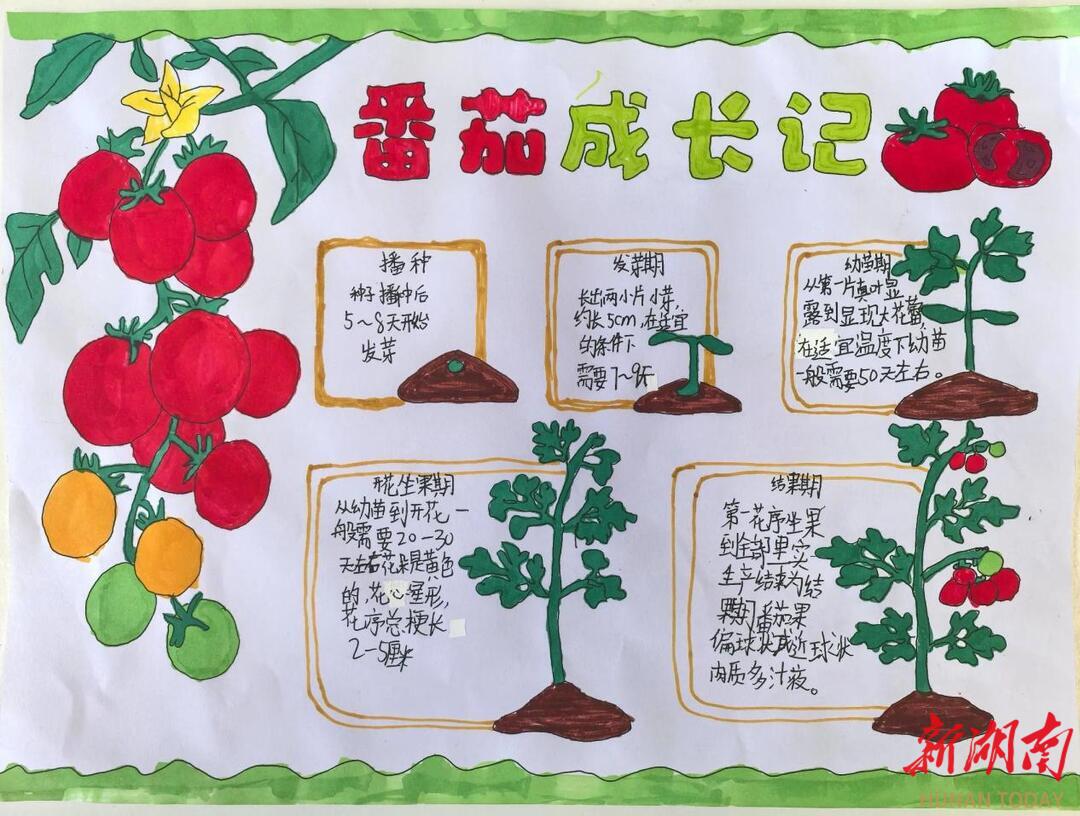 番茄成长记
播种
种子播种后
5～8天开始
发芽
发芽期
长出两小片小芽,
约长5cm,在适宜
的条件下
需要7～9天
幼苗期
从第一片真叶显
露到显现大花蕾,
在适宜温度下幼苗
一般需要50天左右。
开花坐果期
从幼苗到开花一
般需要20-30
天左右花朵是黄色
的,花心星形,
花序总梗长
2-5厘米
结果期
第一花序坐果
到全部果实
生产结束为结
果期番茄果
偏球状或近球状
肉质多汁液。
新湖南
HUNAN TODAY